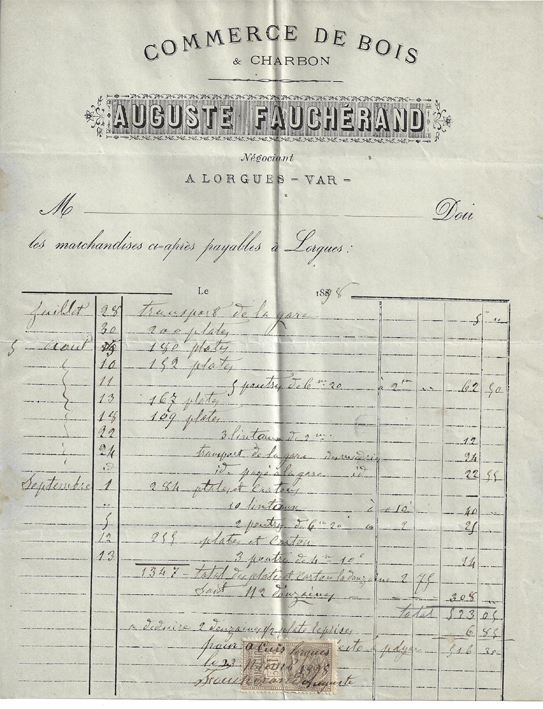 COMMERCE DE BOIS
& CHARBON
AUGUSTE FAUCHÉRAND
Négociant
A LORGUES - VAR -
M Doit
les marchandises ci-après payables à Lorgues:
Le 1898
Juillet 28 transport de la gare 5 "
30 200 plates
Aout 180 plates
10 152 plates
11 5 poutres de 6 m 20 à 2 62 50
13 167 plates
18 109 plates
22 3 linteaux de 2 12
24 transport de la gare 24
id id payé à la gare id 22 55
Septembre 1 284 plates et
10 linteaux 40
5 2 poutres de 6 m 20 25
12 255 plates et
13 3 poutres de 4 m 10 14
1347 total des plates et la douzaine 2 75
Soit 112 douzaines 308
total 523 05
a déduire 2 douzaines 1/2 plates reprises 6 85
à payer 516 20
Lorgues
Faucherand Auguste